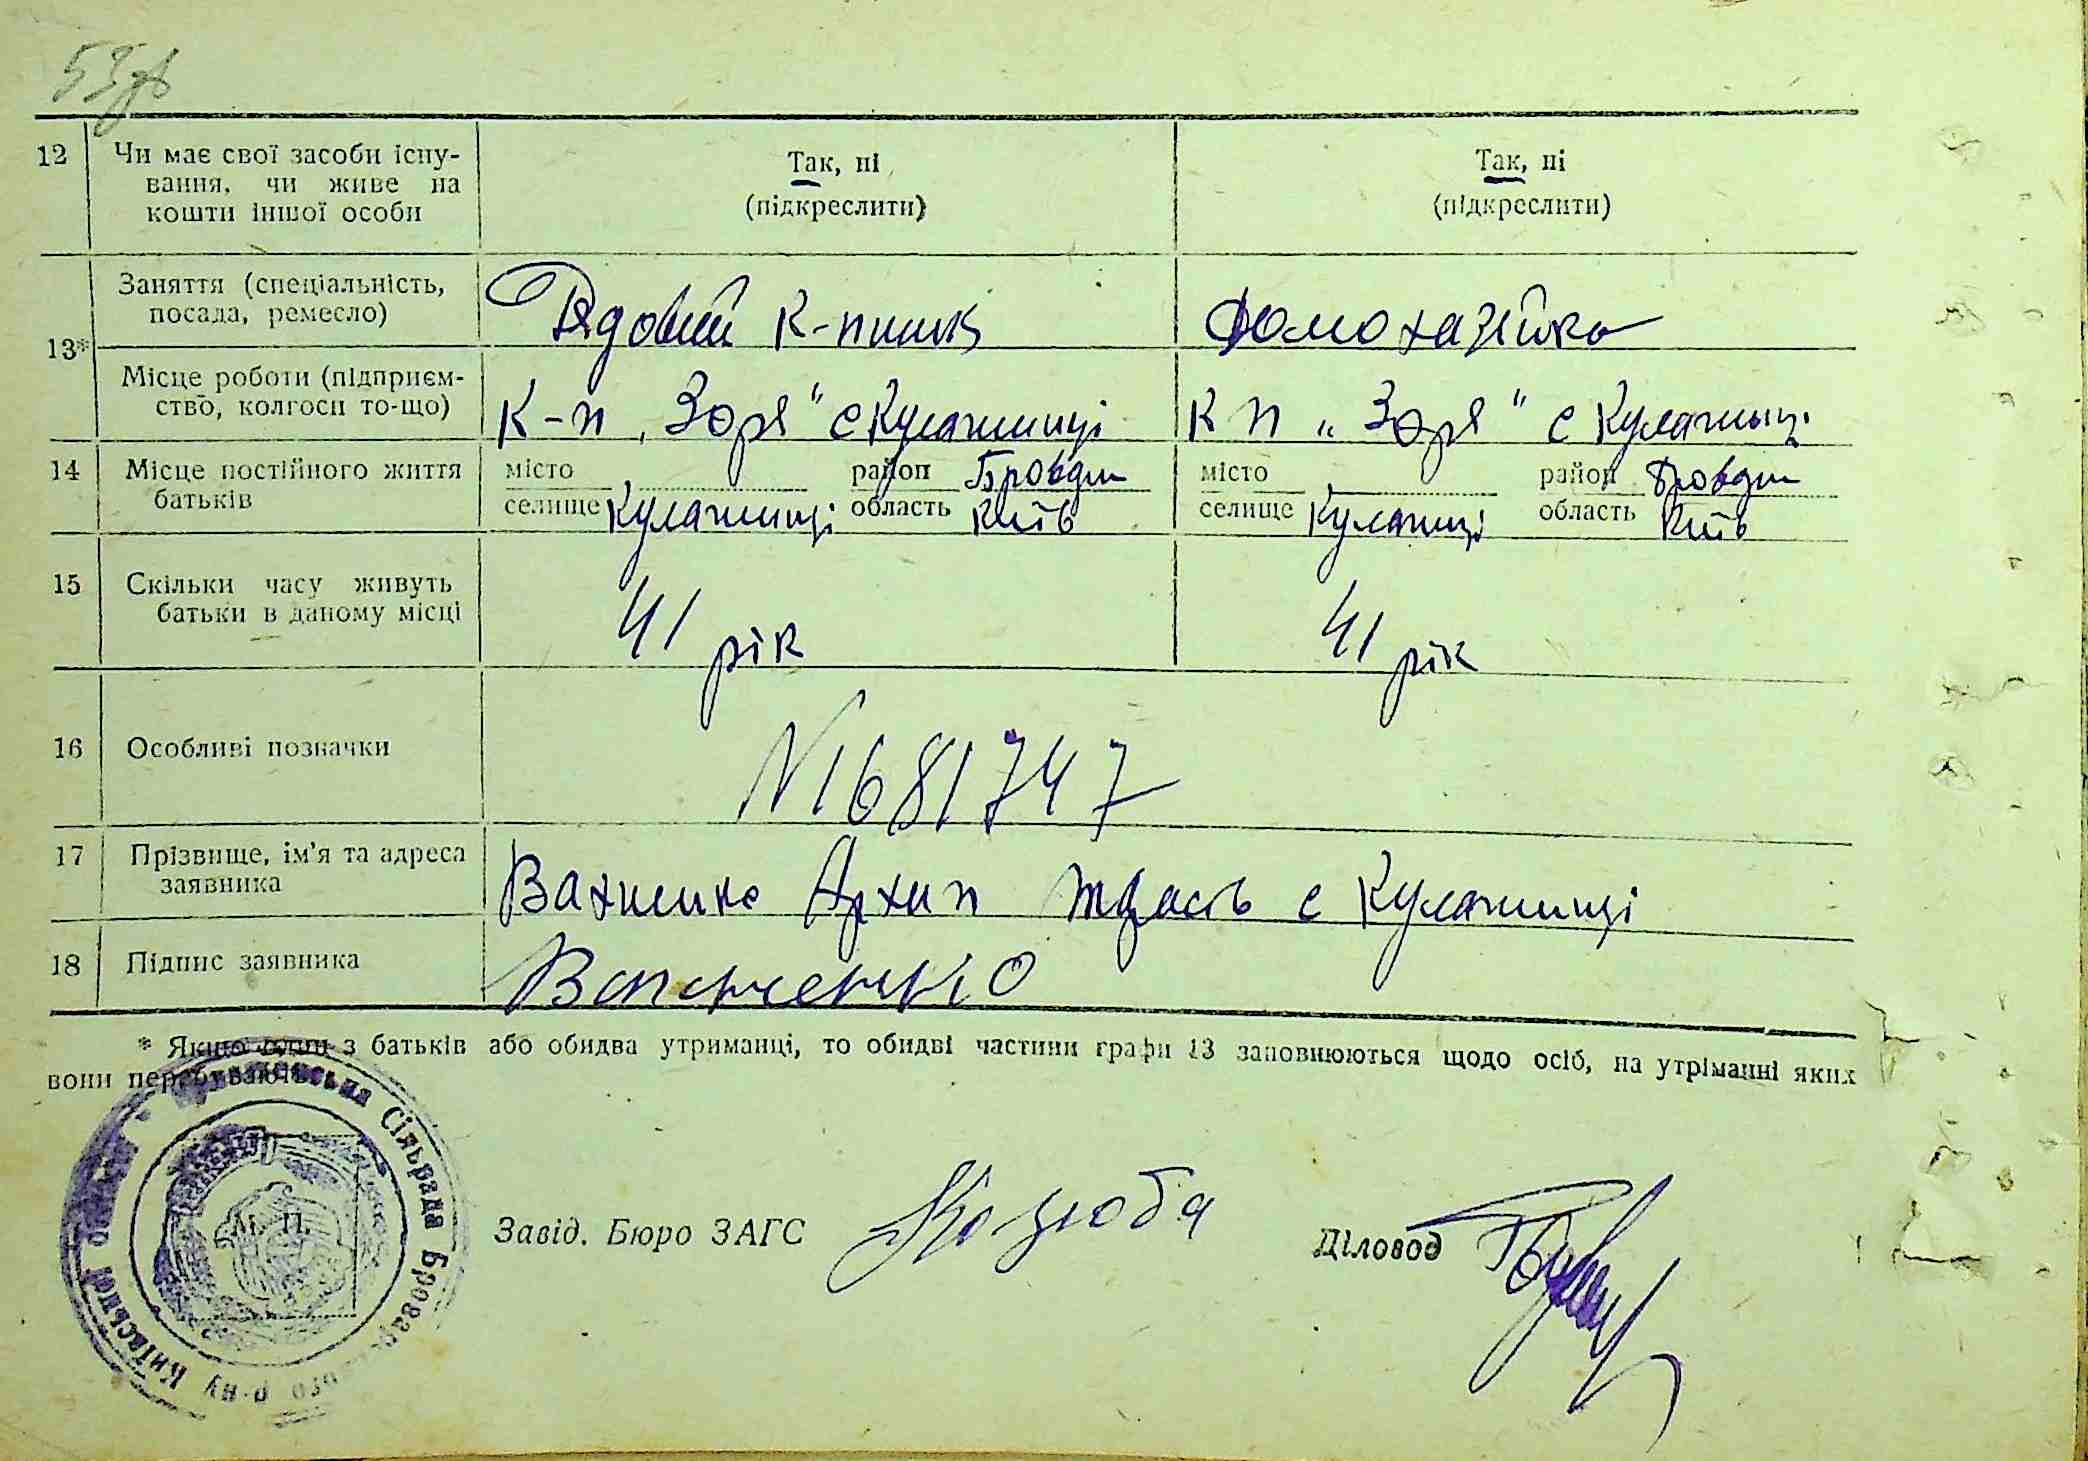 53зв
12 Чи має свої засоби існу-
вання, чи живе на
кошти іншої особи
Так, ні
(підкреслити)
Так, ні
(підкреслити)
13*
Заняття (спеціальність,
посада, ремесло)
Рядовий к-пник
Домохазійка
Місце роботи (підприєм-
ство, колгосп то-що)
К-п „Зоря“ с Кулажинці
К п „Зоря“ с Кулажинці
14 Місце постійного життя
батьків
місто район Бровдт
селище Кулажинці область Київ
місто район Бровдт
селище Кулажинці область Київ
15 Скільки часу живуть
батьки в даному місці
41 рік
41 рік
16 Особливі позначки
N1681747
17 Прізвище, ім'я та адреса
заявника
Архип с Кулажинці
18 Підпис заявника
* Якщо один з батьків або обидва утриманці, то обидві частини графи 13 заповнюються щодо осіб, на утріманні яких
вони перебувають.
Сільрада Бровар ого р-ну Київської
М. П.
Завід. Бюро ЗАГС Коцюба
Діловод